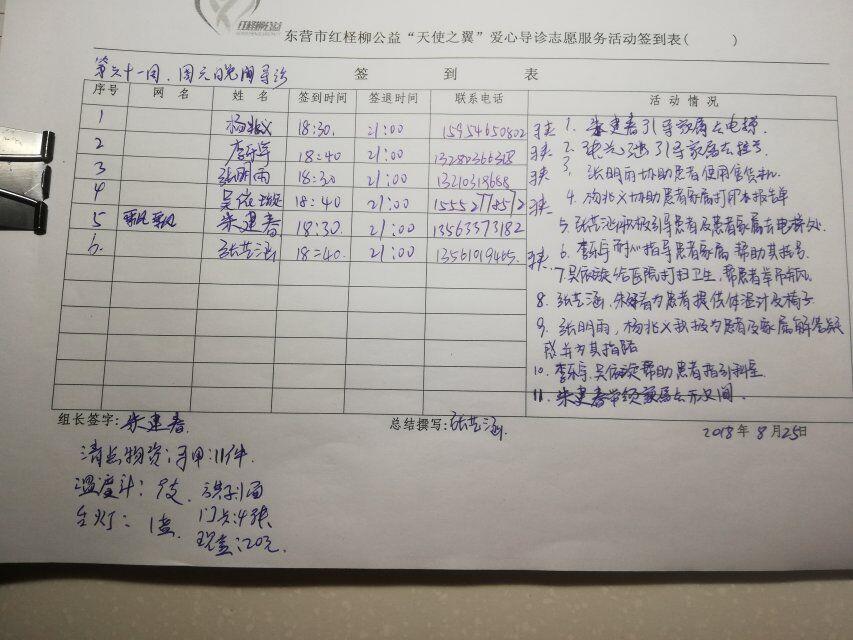 红柽柳公益
东营市红柽柳公益“天使之翼”爱心导诊志愿服务活动签到表( )
第六十一周、周六晚间导诊
签 到 表
序号 网 名 姓 名 签到时间 签退时间 联系电话 活 动 情 况
1 杨兆义 18:30. 21:00 15954650802
2 李乐宇 18:40 21:00
3 张明雨 18:30 21:00
4 吴依璇 18:40 21:00
5 飘飘 朱建春 18:30. 21:00 13563573182
6. 张艺涵 18:40. 21:00 13561019465.
1. 朱建春引导家属去电梯.
2. 引导家属去挂号
3. 张明雨协助患者使用售货机.
4. 杨兆义协助患者家属打印本报告单
5. 张艺涵积极引导患者及患者家属去电梯处.
6. 李乐宇耐心指导患者家属,帮助其挂号
7. 吴依璇给医院打扫卫生,帮患者举吊瓶.
8. 张艺涵、朱建春为患者提供体温计及椅子
9. 张明雨,杨兆义积极为患者及家属解答疑
惑并为其指路
10. 李乐宇、吴依璇帮助患者指引科室
11. 朱建春带领家属去卫生间.
组长签字:朱建春.
总结撰写:张艺涵.
2018年8月25日
清点物资:马甲:11件.
温度计:9支、洪剂1面
台灯:1盏. 门卡:4张
现金:20元.